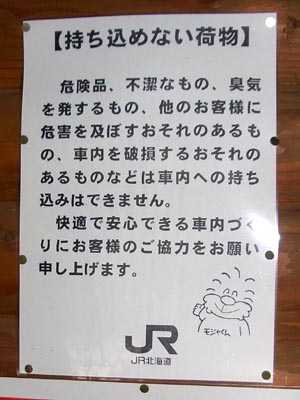 【持ち込めない荷物】
危険品、不潔なもの、臭気
を発するもの、他のお客様に
危害を及ぼすおそれのあるも
の、車内を破損するおそれの
あるものなどは車内への持ち
込みはできません。
快適で安心できる車内づく
りにお客様のご協力をお願い
申し上げます。
モジャくん
JR
JR北海道